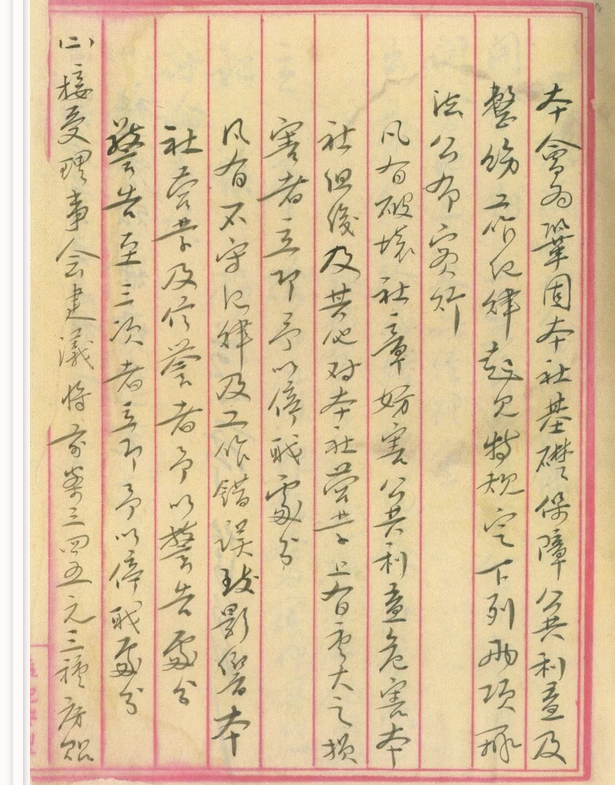 本會為鞏固本社基礎保障公共利益及
整飭工作紀律起見特規定下列兩項辦
法公布實行
凡有破壞社章妨害公共利益危害本
社但後及其他对本社營業上有重大之損
害者立即予以停職處分
凡有不守紀律及工作錯誤致影響本
社營業及信譽者予以警告處分
警告至三次者立即予以停職處分
(二)接受理事会建議將前奉三四五元三種房租